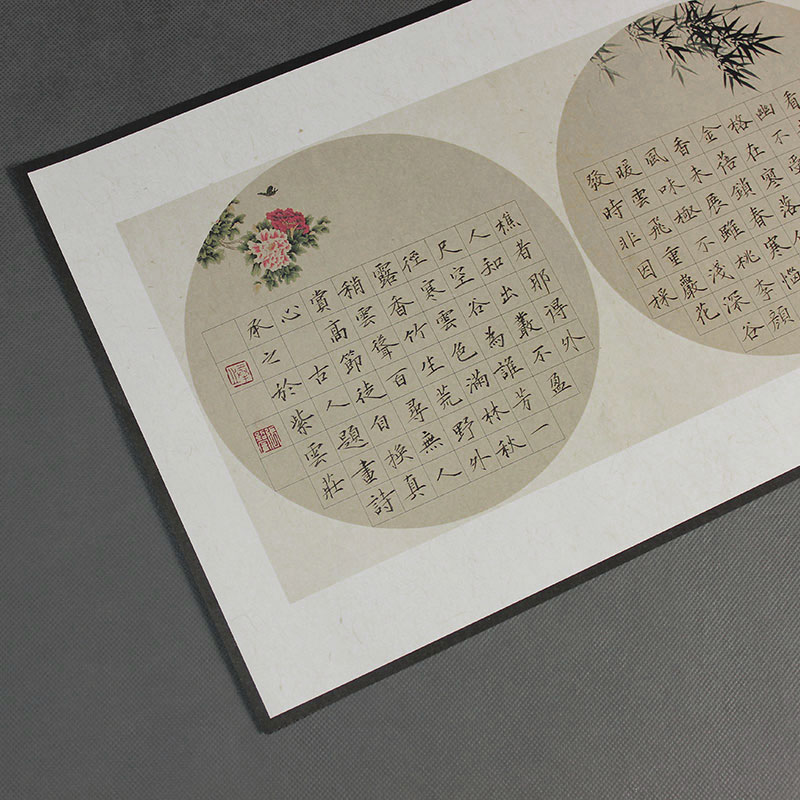 看
幽不受
格在寒落
金蓓鎖春寒惱
香未展雖桃李顏
風味極不淺深谷
暖雲飛重巖花
發時非因採
樵者那得外
人知出叢不盈
尺空谷為誰芳一
徑寒雲色滿林秋
露香竹生荒野外
稍雲聳百尋無人
賞高節徒自換真
心 古人題畫詩
承之於紫雲莊